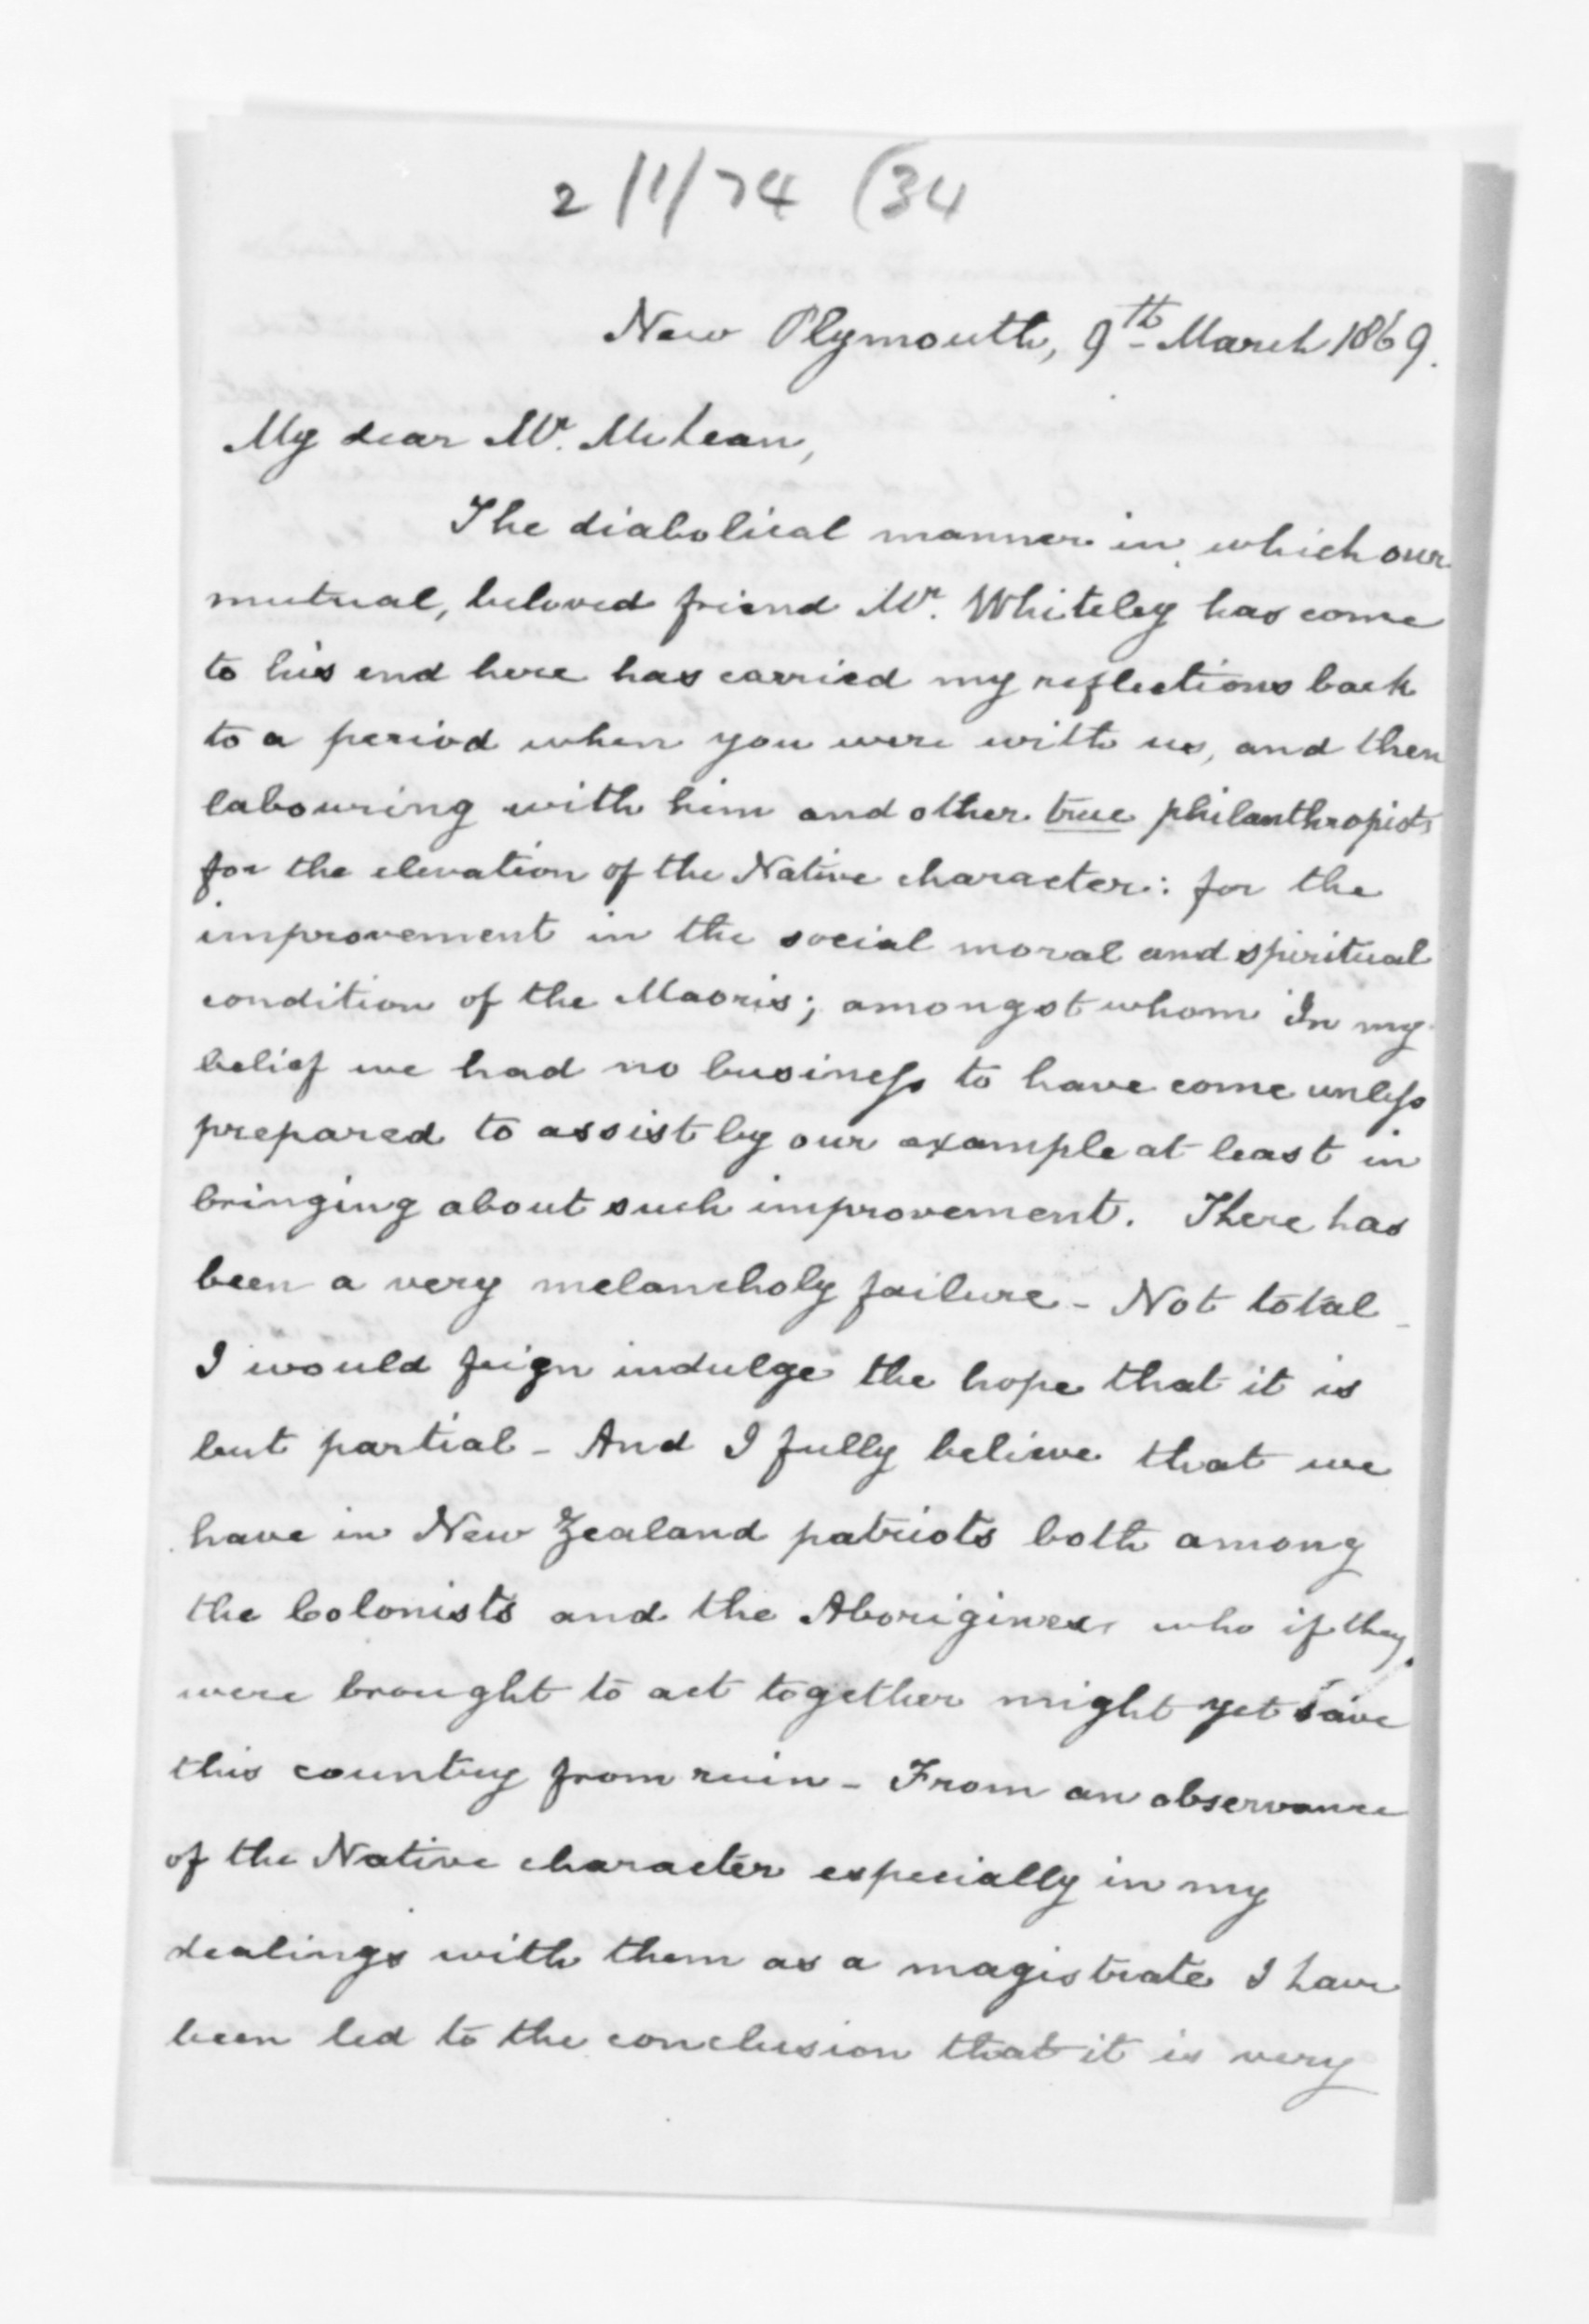 2/1/74 (34
New Plymouth, 9th March 1869.
My dear Mr. McLean,
The diabolical manner in which our
mutual, beloved friend Mr. Whiteley has come
to his end here has carried my reflections back
to a period when you were with us, and then
labouring with him and other true philanthropists
for the elevation of the Native character: for the
improvement in the social moral and spiritual
condition of the Maoris; amongst whom in my
belief we had no business to have come unless
prepared to assist by our example at least in
bringing about such improvement. There has
been a very melancholy failure - Not total -
I would feign indulge the hope that it is
but partial - And I fully believe that we
have in New Zealand patriots both among
the Colonists and the Aborigines who if they
were brought to act together might yet save
this country from ruin - From an observance
of the Native character especially in my
dealings with them as a magistrate I have
been led to the conclusion that it is very